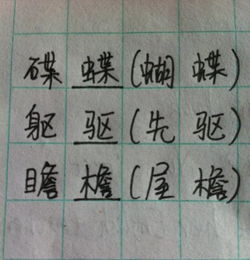 碟 蝶(蝴 蝶)
躯 驱(先 驱)
瞻 檐(屋 檐)